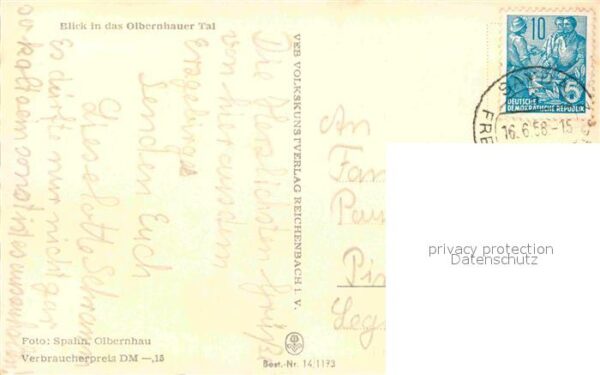 Blick in das Olbernhauer Tal
Die herzlichsten Grüße
von hier aus dem
Erzgebirge
senden Euch
Es dürfte nur nicht gar
so kalt
Foto: Spahn, Olbernhau
Verbraucherpreis DM —,15
VEB VOLKSKUNSTVERLAG REICHENBACH i. V.
Best.-Nr. 14/1173
10
DEUTSCHE
DEMOKRATISCHE REPUBLIK
16.6.58-15
FRE
An
Fam
Pau
Pi
Leg
privacy protection
Datenschutz